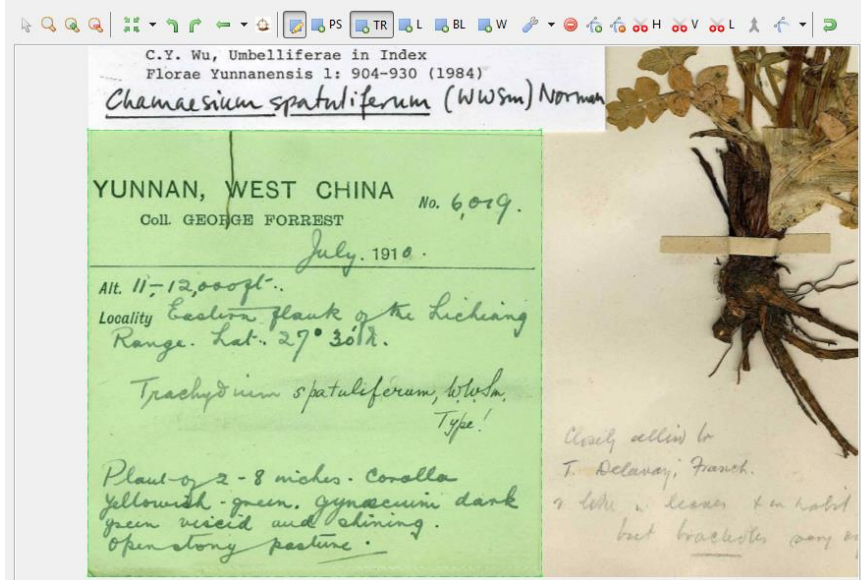 PS TR L BL W H V L
C.Y. Wu, Umbelliferae in Index
Florae Yunnanensis 1: 904-930 (1984)
Chamaesium spatuliferum (WWSm) Norman
YUNNAN, WEST CHINA
No. 6,019.
Coll. GEORGE FORREST
July. 1910.
Alt. 11-12,000ft..
Locality Eastern flank of the Lichiang
Range. Lat. 27° 30'N.
Trachydium spatuliferum, W.W.Sm.
Type!
Plant of 2-8 inches. Corolla
yellowish-green. gynaecium dark
green viscid and shining.
Open stony pasture.
Closely allied to
T. Delavayi, Franch.
& like in leaves & in habit
but bracteoles very